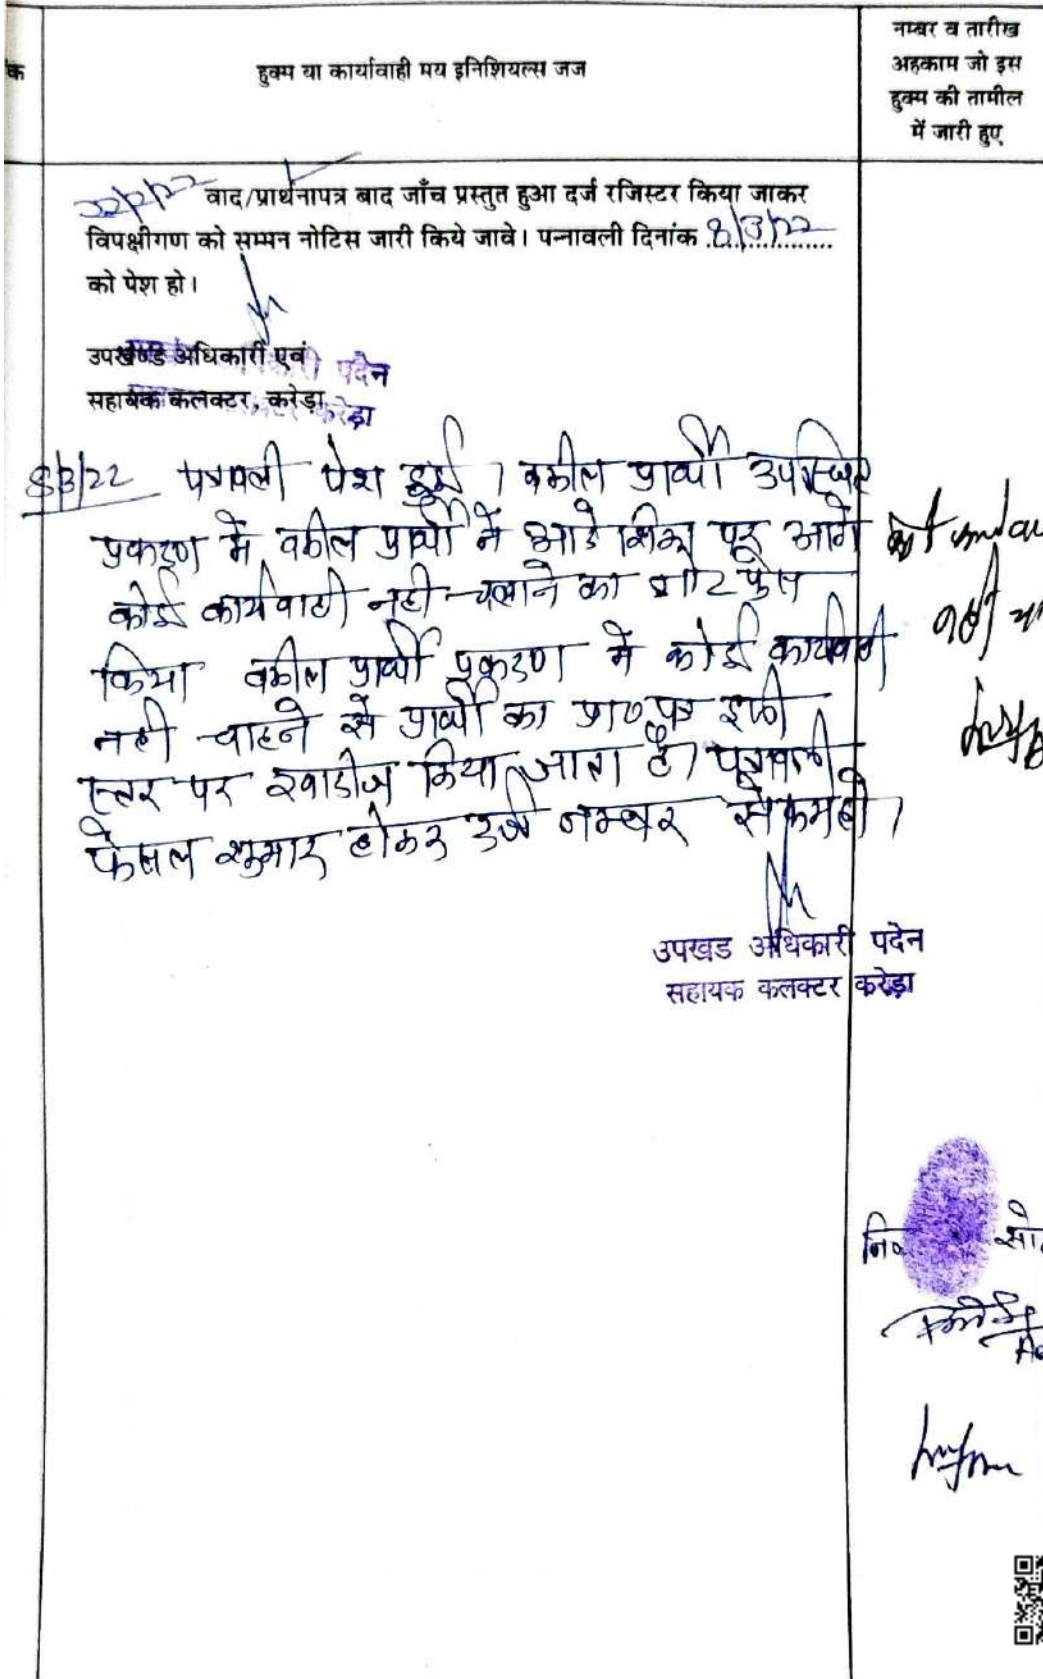 क
हुक्म या कार्यावाही मय इनिशियल्स जज
नम्बर व तारीख
अहकाम जो इस
हुक्म की तामील
में जारी हुए
22/2/22 वाद/प्रार्थनापत्र बाद जाँच प्रस्तुत हुआ दर्ज रजिस्टर किया जाकर
विपक्षीगण को सम्मन नोटिस जारी किये जावे। पन्नावली दिनांक 8/3/22
को पेश हो।
उपखण्ड अधिकारी एवं
सहायक कलक्टर, करेड़ा
पदेन
करेड़ा
8/3/22 पत्रावली पेश हुई। वकील प्रार्थी उपस्थित
प्रकरण में वकील प्रार्थी ने आर्डर शीट पर आगे
कोई कार्यवाही नही चलाने का नोट पेश
किया वकील प्रार्थी प्रकरण में कोई कार्यवाही
नही चाहने से प्रार्थी का प्रा० पत्र इसी
स्तर पर खारीज किया जाता है। पत्रावली
फैसल शुमार होकर दर्ज नम्बर से कम हो।
उपखड अधिकारी पदेन
सहायक कलक्टर करेड़ा
नि०